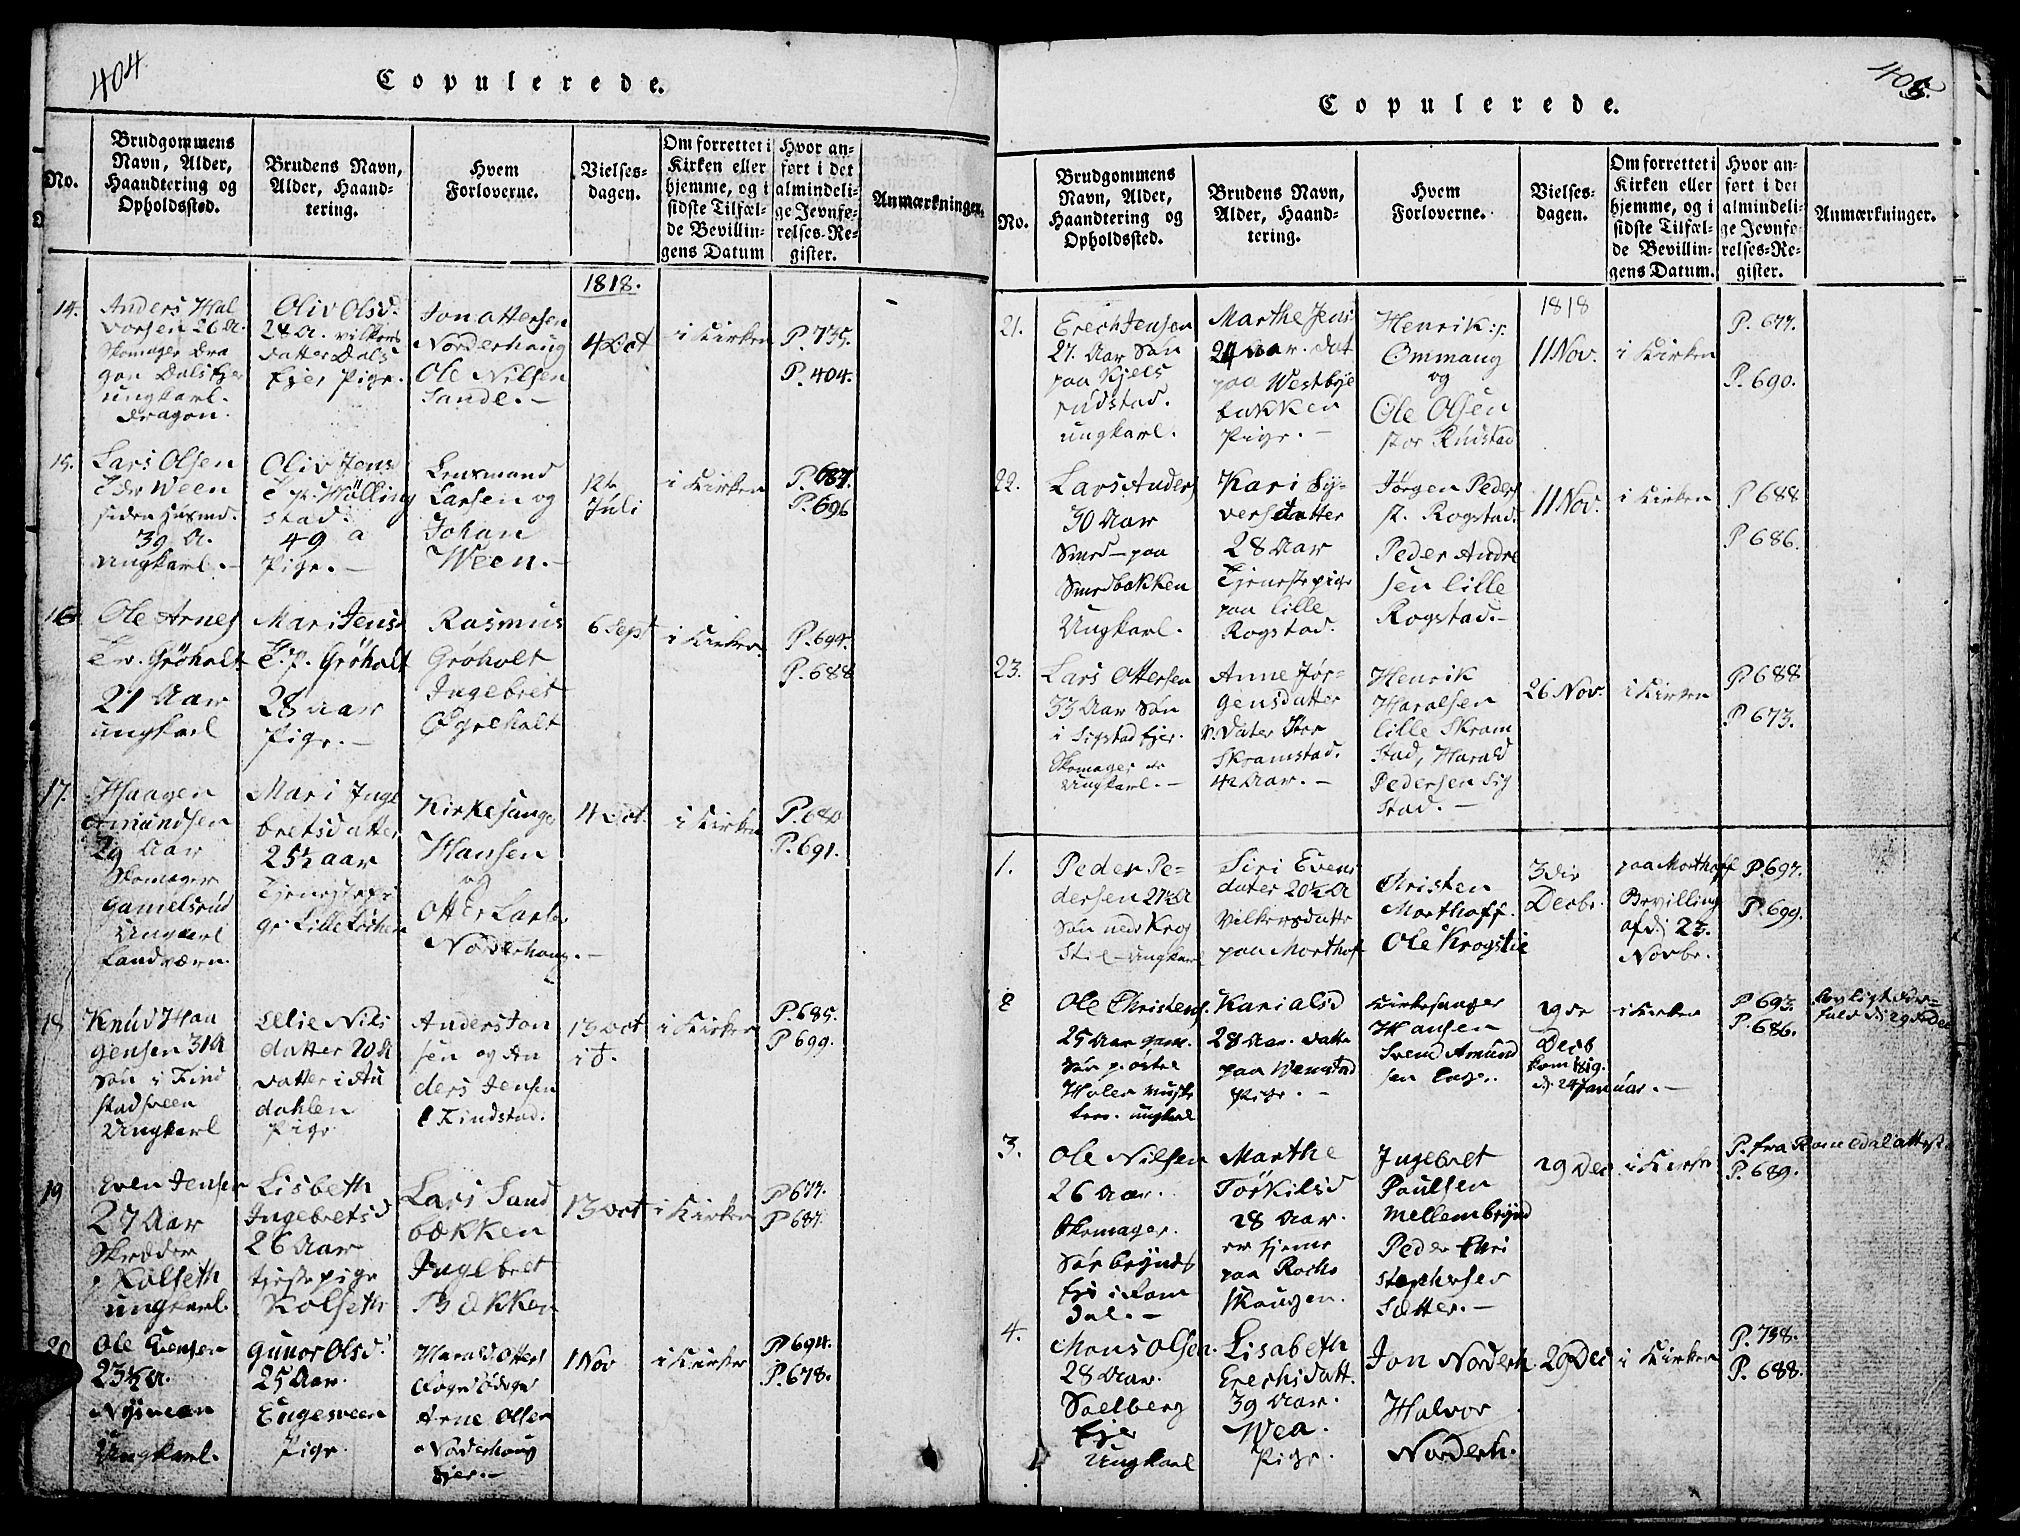 404
Copulerede.
No.
Brudgommens
Navn, Alder,
Haandtering og
Opholdssted.
Brudens Navn,
Alder, Haand-
tering.
Hvem
Forloverne.
Vielses-
dagen.
Om forrettet i
Kirken eller
hjemme, og i
sidste Tilfæl-
de Bevillin-
gens Datum
Hvor an-
ført i det
almindeli-
ge Jevnfø-
relses-Re-
gister.
Anmærkninger.
1818.
14.
Anders Hal
vorsen 26 A.
Skomager Dra
gon Dals Ejer
ungkarl.
Dragon.
Oliv Olsd.
28 A. vilkers
datter Dals
Ejer Pige.
Jon Ottersen
Norderhaug
Ole Nilsen
Sande.-
4 Oct
i Kirken
P. 735.
P. 404.
15.
Lars Olsen
Ween
39 A.
Ungkarl.-
Oliv Jensd
T. p. Hölling
stad.
49 a
Pige.-
Lensmand
Larsen og
Johan
Ween.-
12te
Juli
i Kirken
P. 687.
P. 696
16
Ole Arnes
Gröholt
27 Aar
ungkarl
Mari Jensd
T. p. Gröholt
28 Aar
Pige.-
Rasmus
Gröholt
Ingebret
Ögreholt
6 Sept
i Kirken.
P. 694.
P. 688
17.
Haagen
Amundsen
29 Aar
Skomager
Gamelsrud
Ungkarl
Landværn.
Mari Inge
bretsdatter
25½ aar
Tjenestepi
ge Lille
Kirkesanger
Hansen
og
Otter Larse
Norderhaug.-
4 Oct.
i Kirken
P. 680
P. 691.
18
Knud Haa
gensen 31 A
Søn i Find
stadsveen
Ungkarl
Nils
datter 20 A
datter i Au
dahlen
Pige
Anders Jon
sen og An
ders Jensen
Findstad.
13 Oct
i Kirken
P. 685.
P 699.
19
Even Jensen
27 Aar
Skræder
Kolseth
ungkarl.
Lisbeth
Ingebretsd
26 Aar
tjestepige
Kolseth
Lars Sand
bækken
Ingebret
Bækken
13 Oct
i Kirken
P 677.
P 687.
20
Ole Evensen
23½ A.
Nysveen
Ungkarl.
Gunor Olsd.
25 Aar.
Engesveen
Pige.
Harald Otters
Arne Olsen
Norderhaug
Ejer.-
1 Nov
i Kirke
P 694.
P. 678.
405.
Copulerede.
No.
Brudgommens
Navn, Alder,
Haandtering og
Opholdssted.
Brudens Navn,
Alder, Haand-
tering.
Hvem
Forloverne.
Vielses-
dagen.
Om forrettet i
Kirken eller
hjemme, og i
sidste Tilfæl-
de Bevillin-
gens Datum.
Hvor an-
ført i det
almindeli-
ge Jevnfø-
relses-Re-
gister.
Anmærkninger.
1818
21.
Erech Jensen
27. Aar Søn
paa Kjels
rudstad.
ungkarl.
Marthe Jens
24 Aar. dat
paa Westbye
bakken
Pige.-
Henrik
Ommang
og
Ole Olsen
stor Rustad
11 Nov.
i Kirken
P. 677.
P. 690.
22.
Lars Anders
30 Aar
Smed paa
Smedbakken
Ungkarl.
Kari Sy-
versdatter
28 Aar
Tjenestepige
paa Lille
Rogstad.
Jørgen Peders
st. Rogstad.
Peder Andre
sen Lille
Rogstad.-
11 Nov.
i Kirken
P 688
P 686.
23.
Lars Ottersen
33 Aar Søn
i Sigstad Ejer.
Skomager
Ungkarl.-
Anne Jør-
gensdatter
Skramstad.
42 Aar.-
Henrik
Haralsen
Lille Skram
stad, Harald
Pedersen Sig
stad.-
26 Nov.
i Kirken
P 688
P 673.
1.
Peder Pe-
dersen 27½ A
Søn nedr Krog
Stie Ungkarl
Siri Evens
dater 20½ A
Vilkersdatte
paa Morthof
Christen
Morthoff.
Ole Krogstie
3die
Decbr.
paa Morthoff
Bevilling
af d. 23.
Novbr.
P 697.
P. 699.
2
Ole Christens
25 Aar gam.
Søn p østre
Holen
ungkarl
Kari Alsd
28 Aar. datte
paa Wenstad
Pige.-
Kirkesanger
Hansen
Svend Amund
sen
29de
Decb
kom 1819.
d. 24 Januar.-
i Kirken
P 693.
P. 686.
3.
Ole Nilsen
26 Aar.
Skomager.
Sørbrynds
Ejer i Rom
dal.-
Marthe
Torkilsd
28 Aar.
er hjeme
paa Rochs
Skaugen.
Ingebret
Paulsen
Mellembrynd
Peder Chri
stophersen
Sætter.-
29 Dec
i Kirke
P. fra Romedal attest
P. 689.
4.
Mons Olsen.
28 Aar.
Soelberg
Ejer
Ungkarl
Lisabeth
Erechsdatt.
39 Aar.
Wea.
Pige.
Jon Norderh.
Halvor
Norderh.
29 Dec
i Kirken
P. 738.
P. 688.